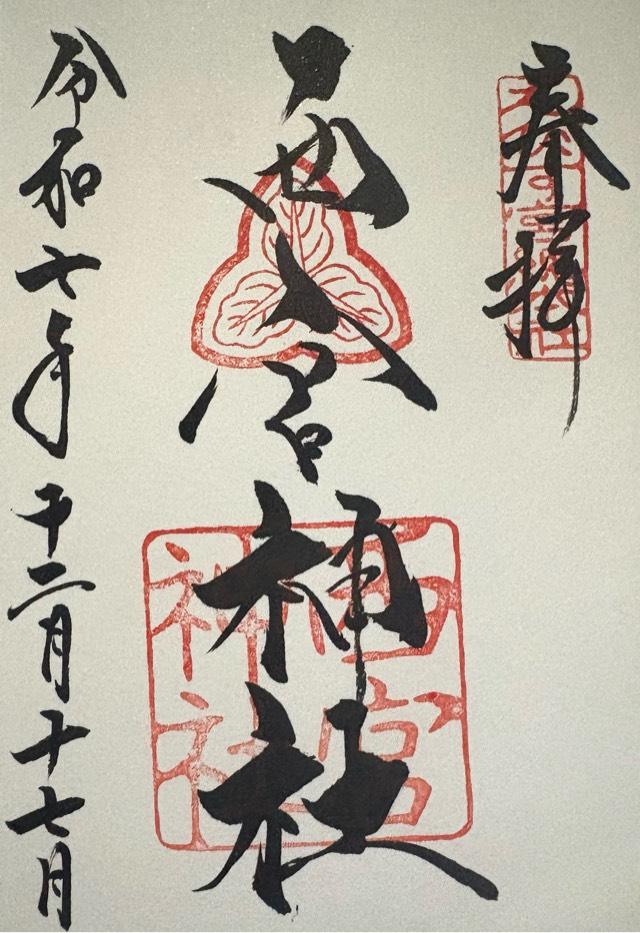 奉拝
西宮神社
西宮
神社
令和七年十二月十七日